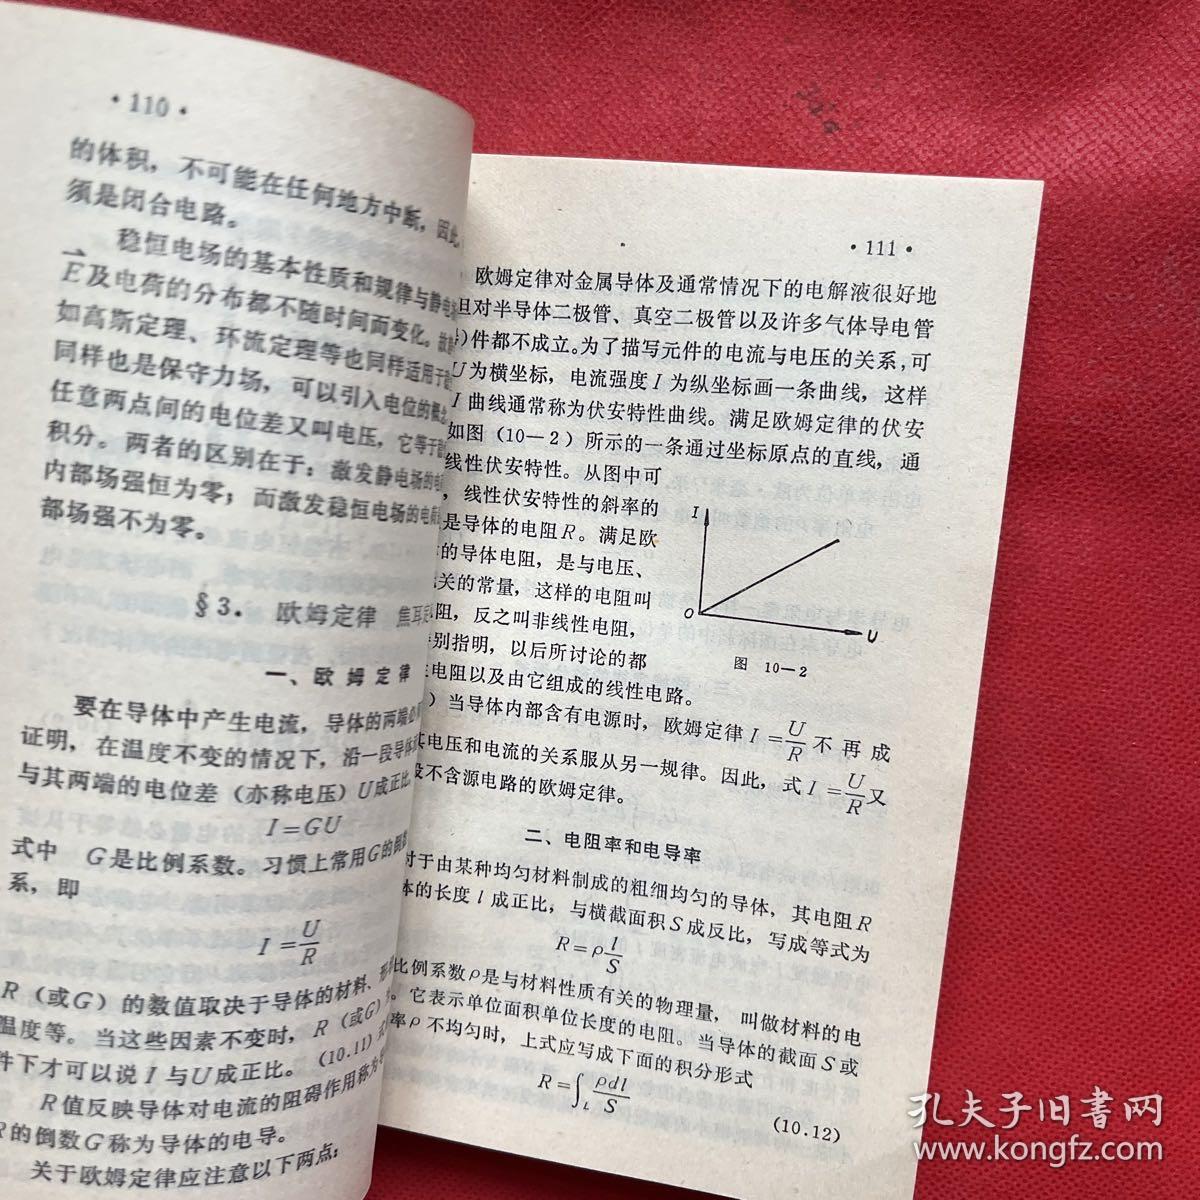 ·110·
的体积，不可能在任何地方中断，因此，
须是闭合电路。
稳恒电场的基本性质和规律与静电
E及电荷的分布都不随时间而变化。故
如高斯定理、环流定理等也同样适用于
同样也是保守力场，可以引入电位的概念
任意两点间的电位差又叫电压，它等于
积分。两者的区别在于：激发静电场的电
内部场强恒为零；而激发稳恒电场的电荷
部场强不为零。
§3. 欧姆定律 焦耳
一、欧姆定律
要在导体中产生电流，导体的两端必
证明，在温度不变的情况下，沿一段导体
与其两端的电位差（亦称电压）U成正比
I=GU
式中 G是比例系数。习惯上常用G的倒数
系，即
I=U/R
R（或G）的数值取决于导体的材料、形
温度等。当这些因素不变时，R（或G）
件下才可以说I与U成正比。（10.11）式
R值反映导体对电流的阻碍作用称为
R的倒数G称为导体的电导。
关于欧姆定律应注意以下两点：
·111·
欧姆定律对金属导体及通常情况下的电解液很好地
且对半导体二极管、真空二极管以及许多气体导电管
件都不成立。为了描写元件的电流与电压的关系，可
U为横坐标，电流强度I为纵坐标画一条曲线，这样
I曲线通常称为伏安特性曲线。满足欧姆定律的伏安
如图（10—2）所示的一条通过坐标原点的直线，通
线性伏安特性。从图中可
，线性伏安特性的斜率的
是导体的电阻R。满足欧
的导体电阻，是与电压、
关的常量，这样的电阻叫
阻，反之叫非线性电阻，
别指明，以后所讨论的都
电阻以及由它组成的线性电路。
I
O
U
图 10—2
）当导体内部含有电源时，欧姆定律I=U/R不再成
其电压和电流的关系服从另一规律。因此，式I=U/R又
段不含源电路的欧姆定律。
二、电阻率和电导率
对于由某种均匀材料制成的粗细均匀的导体，其电阻R
体的长度l成正比，与横截面积S成反比，写成等式为
R=ρl/S
比例系数ρ是与材料性质有关的物理量，叫做材料的电
。它表示单位面积单位长度的电阻。当导体的截面S或
率ρ不均匀时，上式应写成下面的积分形式
R=∫L ρdl/S
(10.12)
孔夫子旧书网
www.kongfz.com